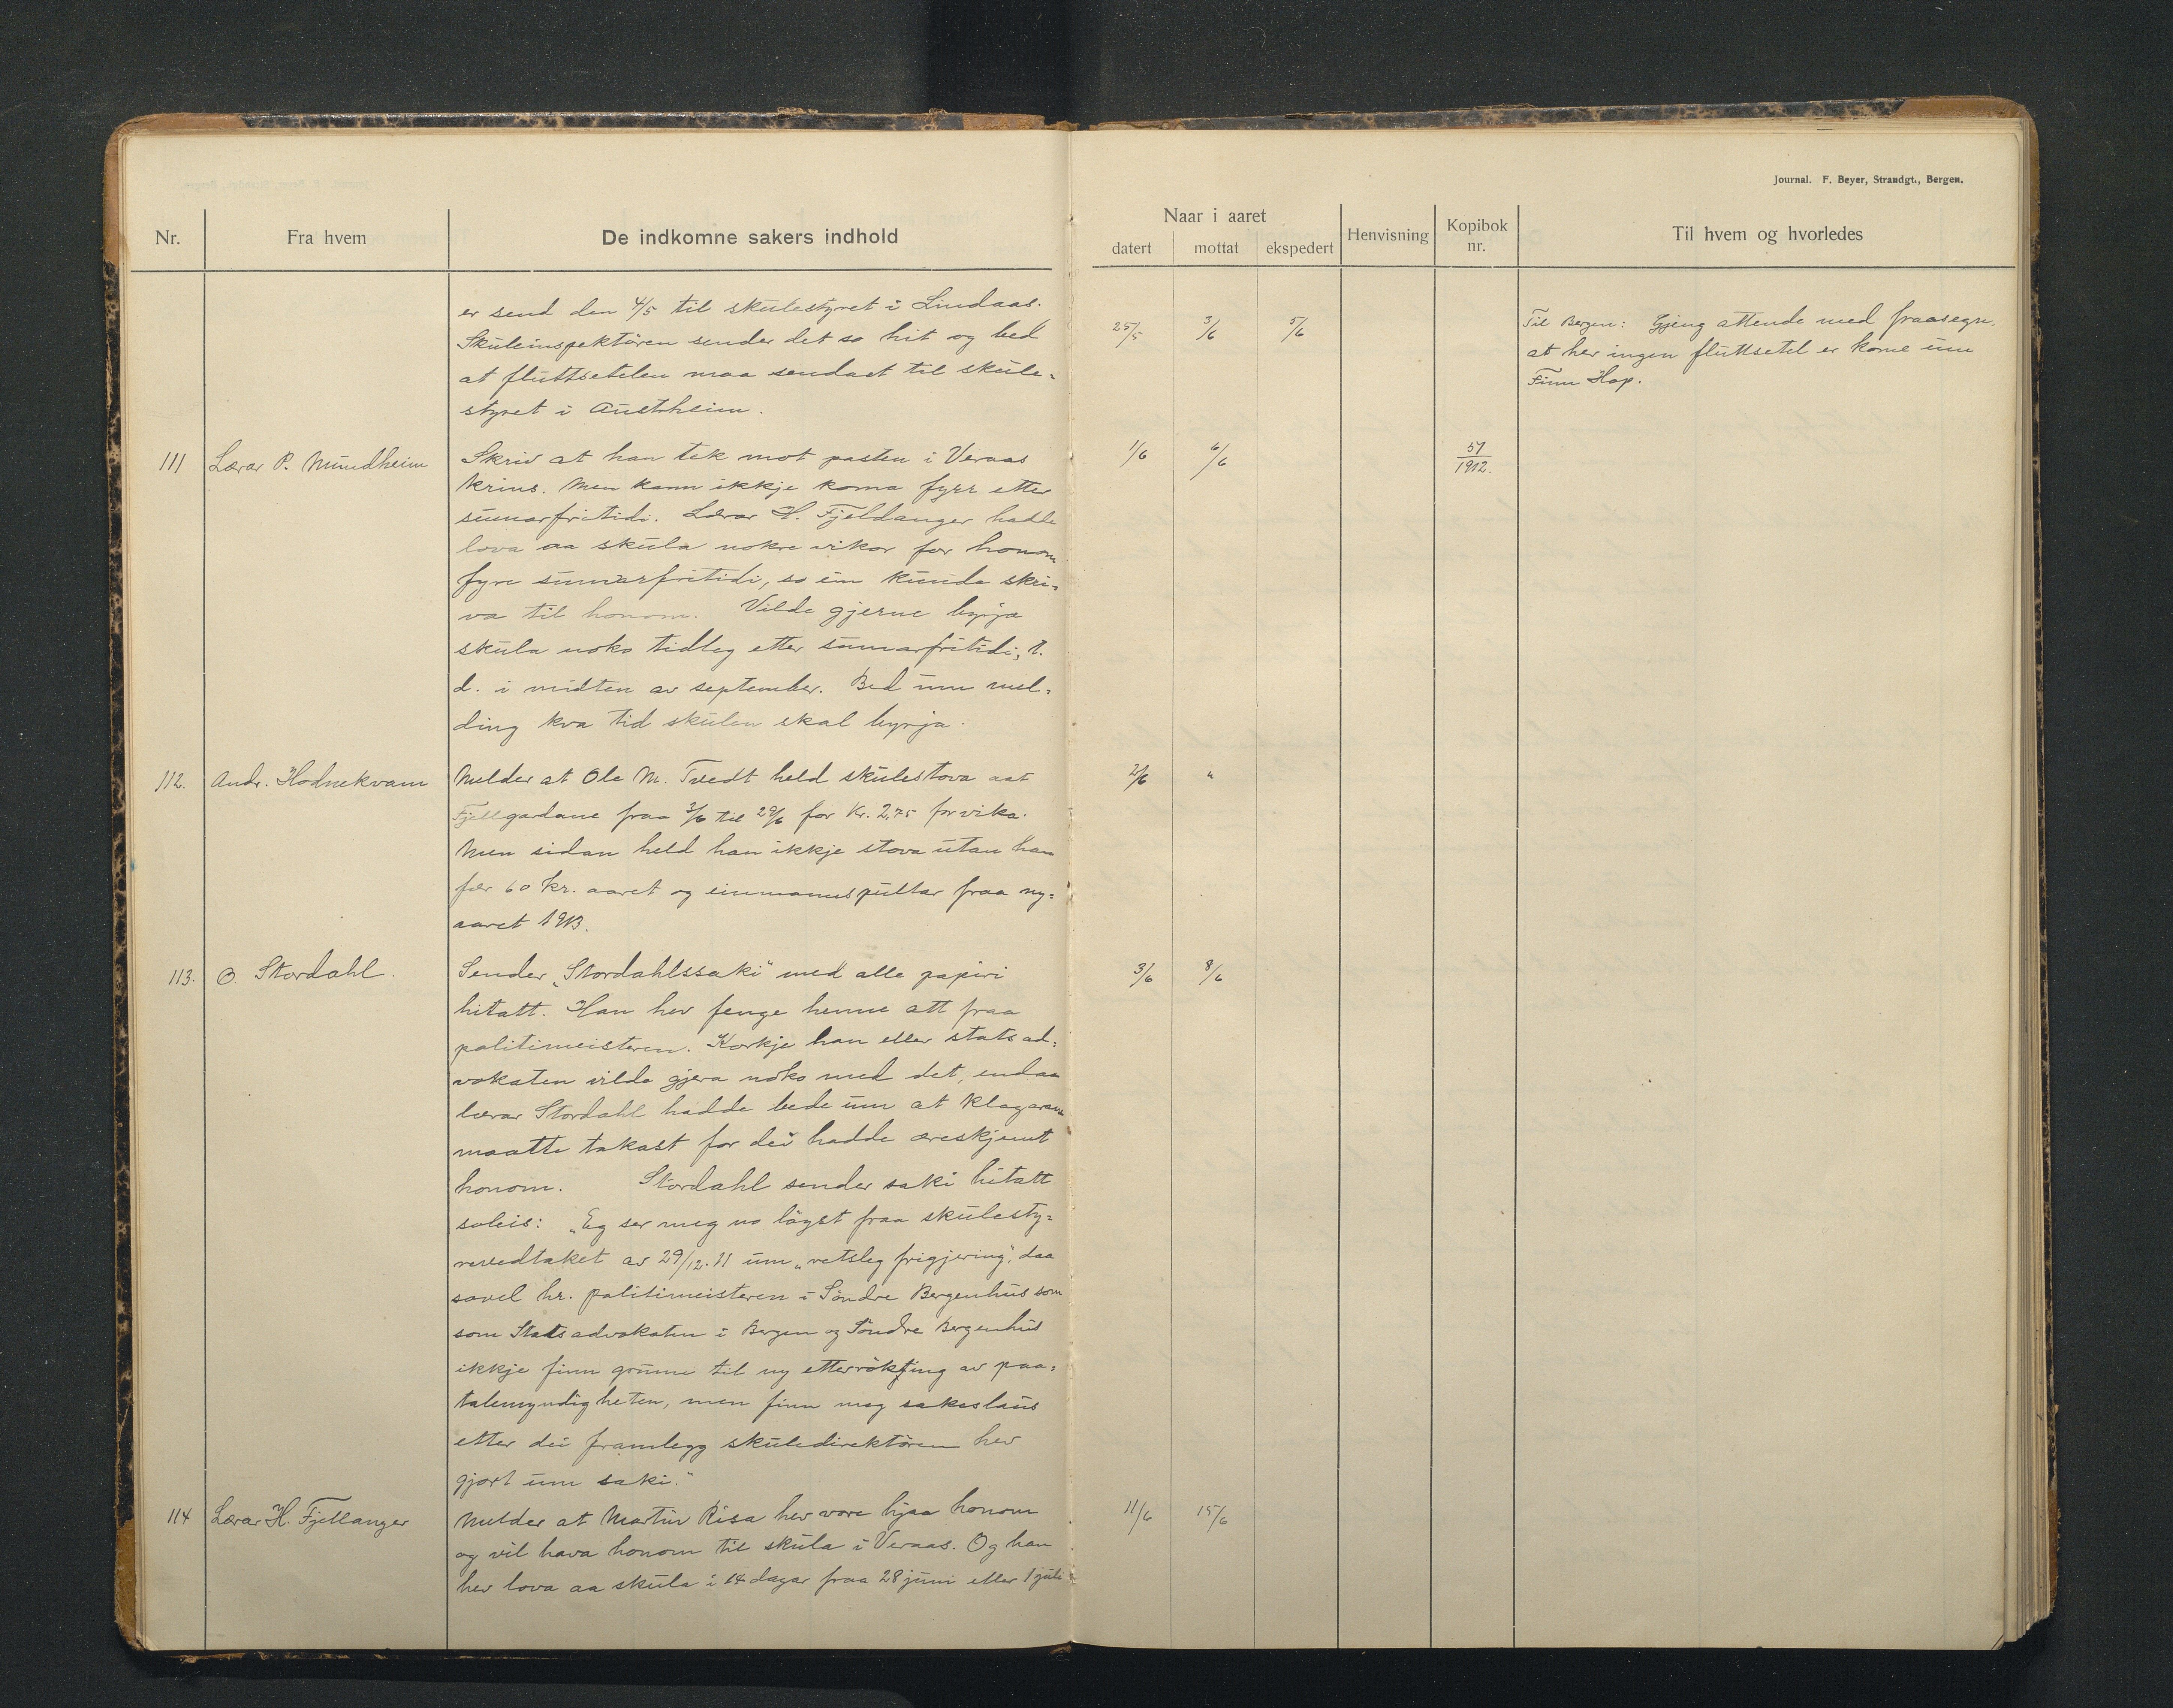 Journal. F. Beyer, Strandgt., Bergen.
Nr. Fra hvem De indkomne sakers indhold
Naar i aaret
datert mottat ekspedert Henvisning Kopibok nr. Til hvem og hvorledes
er send den 4/5 til skulestyret i Lindaas.
Skuleinspektören sender det so hit og bed
at fluttsetelen maa sendast til skule-
styret i Austrheim.
25/5 3/6 5/6
Til Bergen: Gjeng attende med fraasegn,
at her ingen fluttsetel er kome um
Finn Hop.
111 Lærar P. Mundheim
Skriv at han tek mot posten i Veraas
krins. Men kann ikkje koma fyrr etter
sumarfritidi. Lærar H. Fjeldanger hadde
lova aa skula nokre vikor for honom
fyre sumarfritidi, so um kunde skri-
va til honom. Vilde gjerne byrja
skula noko tidleg etter sumarfritidi, t.
d. i midten av september. Bed um mel-
ding kva tid skulen skal byrja.
1/6 6/6 57/1912.
112. Andr. Hodnekvam
Melder at Ole M. Tvedt held skulestova aat
Fjellgardane fraa 3/6 til 29/6 for Kr. 2,75 for vika.
Men sidan held han ikkje stova utan han
fær 60 kr. aaret og einmannspultar fraa ny-
aaret 1913.
2/6 "
113. O. Stordahl.
Sender „Stordahlssaki" med alle papiri
hitatt. Han hev fenge henne att fraa
politimeisteren. Korkje han eller statsad-
vokaten vilde gjera noko med det, endaa
lærar Stordahl hadde bede um at klagarane
maatte takast for dei hadde æreskjemt
honom. Stordahl sender saki hitatt
soleis: „Eg ser meg no löyst fraa skulesty-
revedtaket av 29/12.11 um „retsleg frigjering", daa
sovel hr. politimeisteren i Söndre Bergenhus som
som Statsadvokaten i Bergen og Söndre Bergenhus
ikkje finn grunn til ny etterröking av paa-
talemyndigheten, men finn meg sakeslaus
etter dei framlegg skuledirektören hev
gjort um saki."
3/6 8/6
114 Lærar H. Fjellanger
Melder at Martin Risa hev vore hjaa honom
og vil hava honom til skula i Veraas. Og han
hev lova aa skula i 14 dagar fraa 28 juni eller 1 juli
11/6 15/6